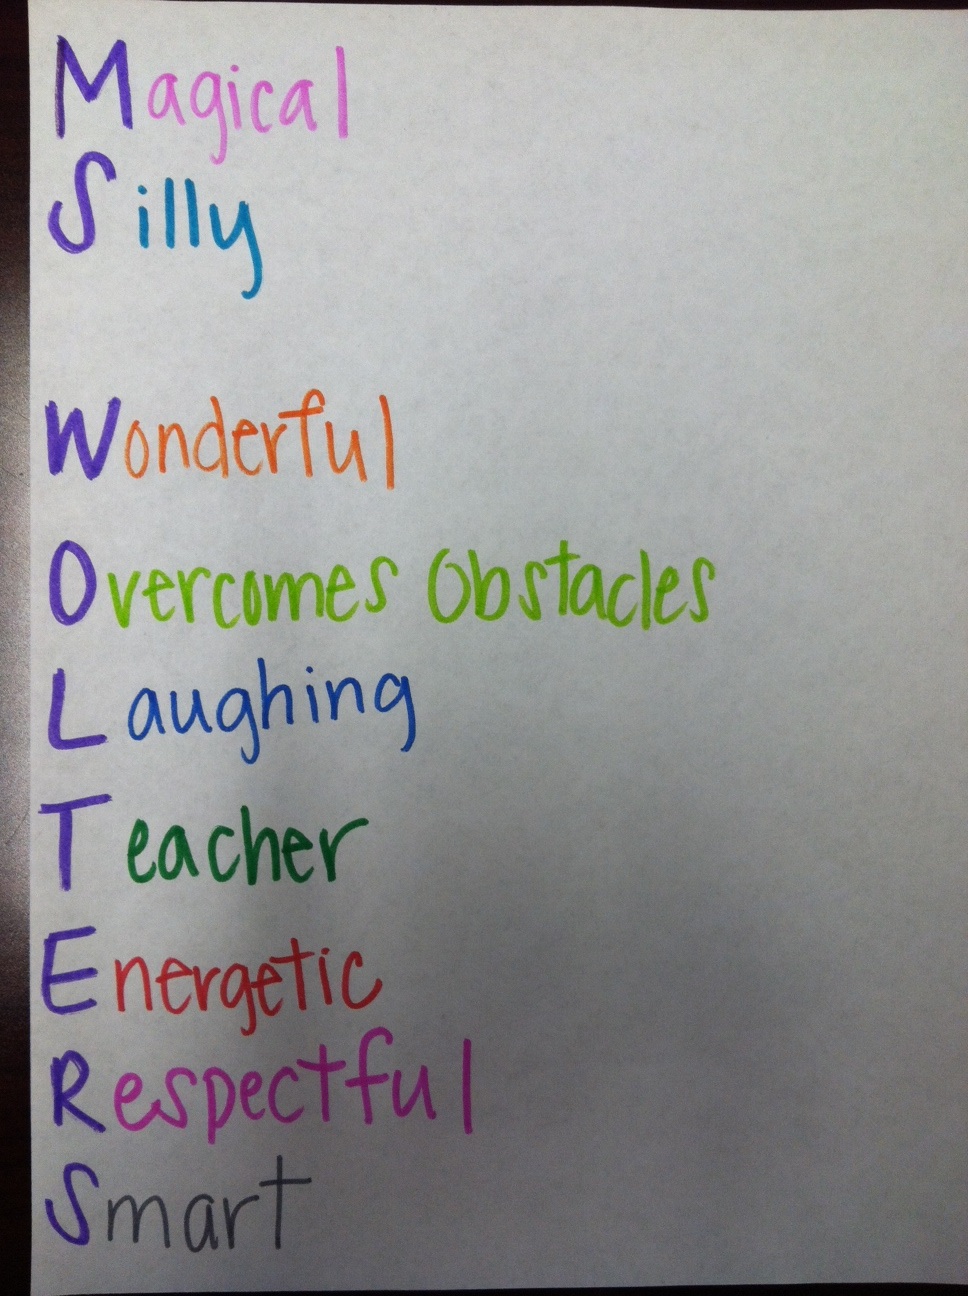 Magical
Silly
Wonderful
Overcomes Obstacles
Laughing
Teacher
Energetic
Respectful
Smart